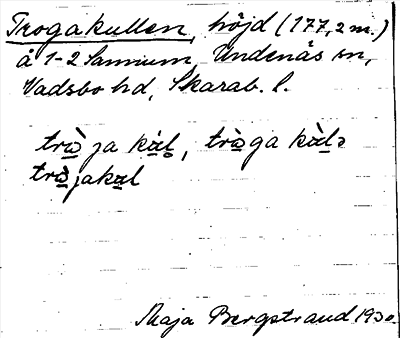 Trogakullen, höjd (177,2 m.)
å 1-2 Sannum, Undenäs sn,
Vadsbo hd, Skarab. l.
trò̲ja kàl̥, trò̲ga kàlə
trò̲jakal
Maja Bergstrand 1930.